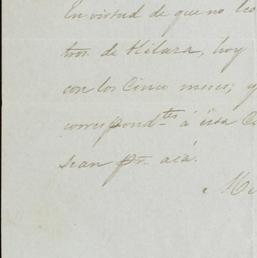 En virtud de que no
tros. de Hilara, hoy
con los Cinco meses; y
correspond.tes á esa
sean pr. acá.